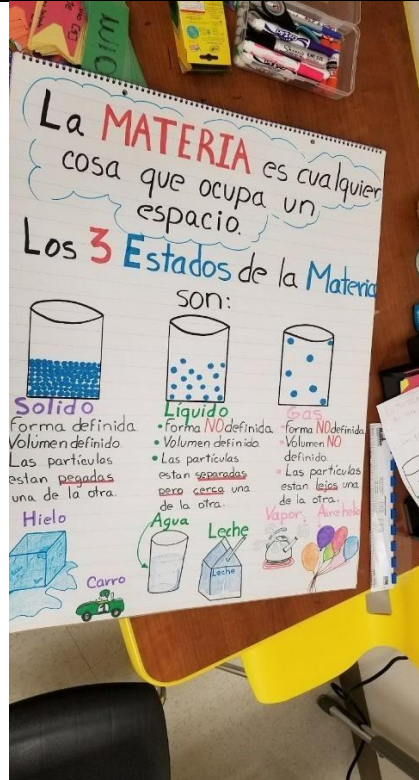 La MATERIA es cualquier
cosa que ocupa un
espacio.
Los 3 Estados de la Materia
son:
Solido
Forma definida
Volumen definido
Las particulas
estan pegadas
una de la otra.
Hielo
Carro
Líquido
• Forma NO definida
• Volumen definido
• Las particulas
estan separadas
pero cerca una
de la otra.
Agua
Leche
Leche
Gas
• Forma NO definida
• Volumen NO
definido
• Las particulas
estan lejos una
de la otra.
Vapor